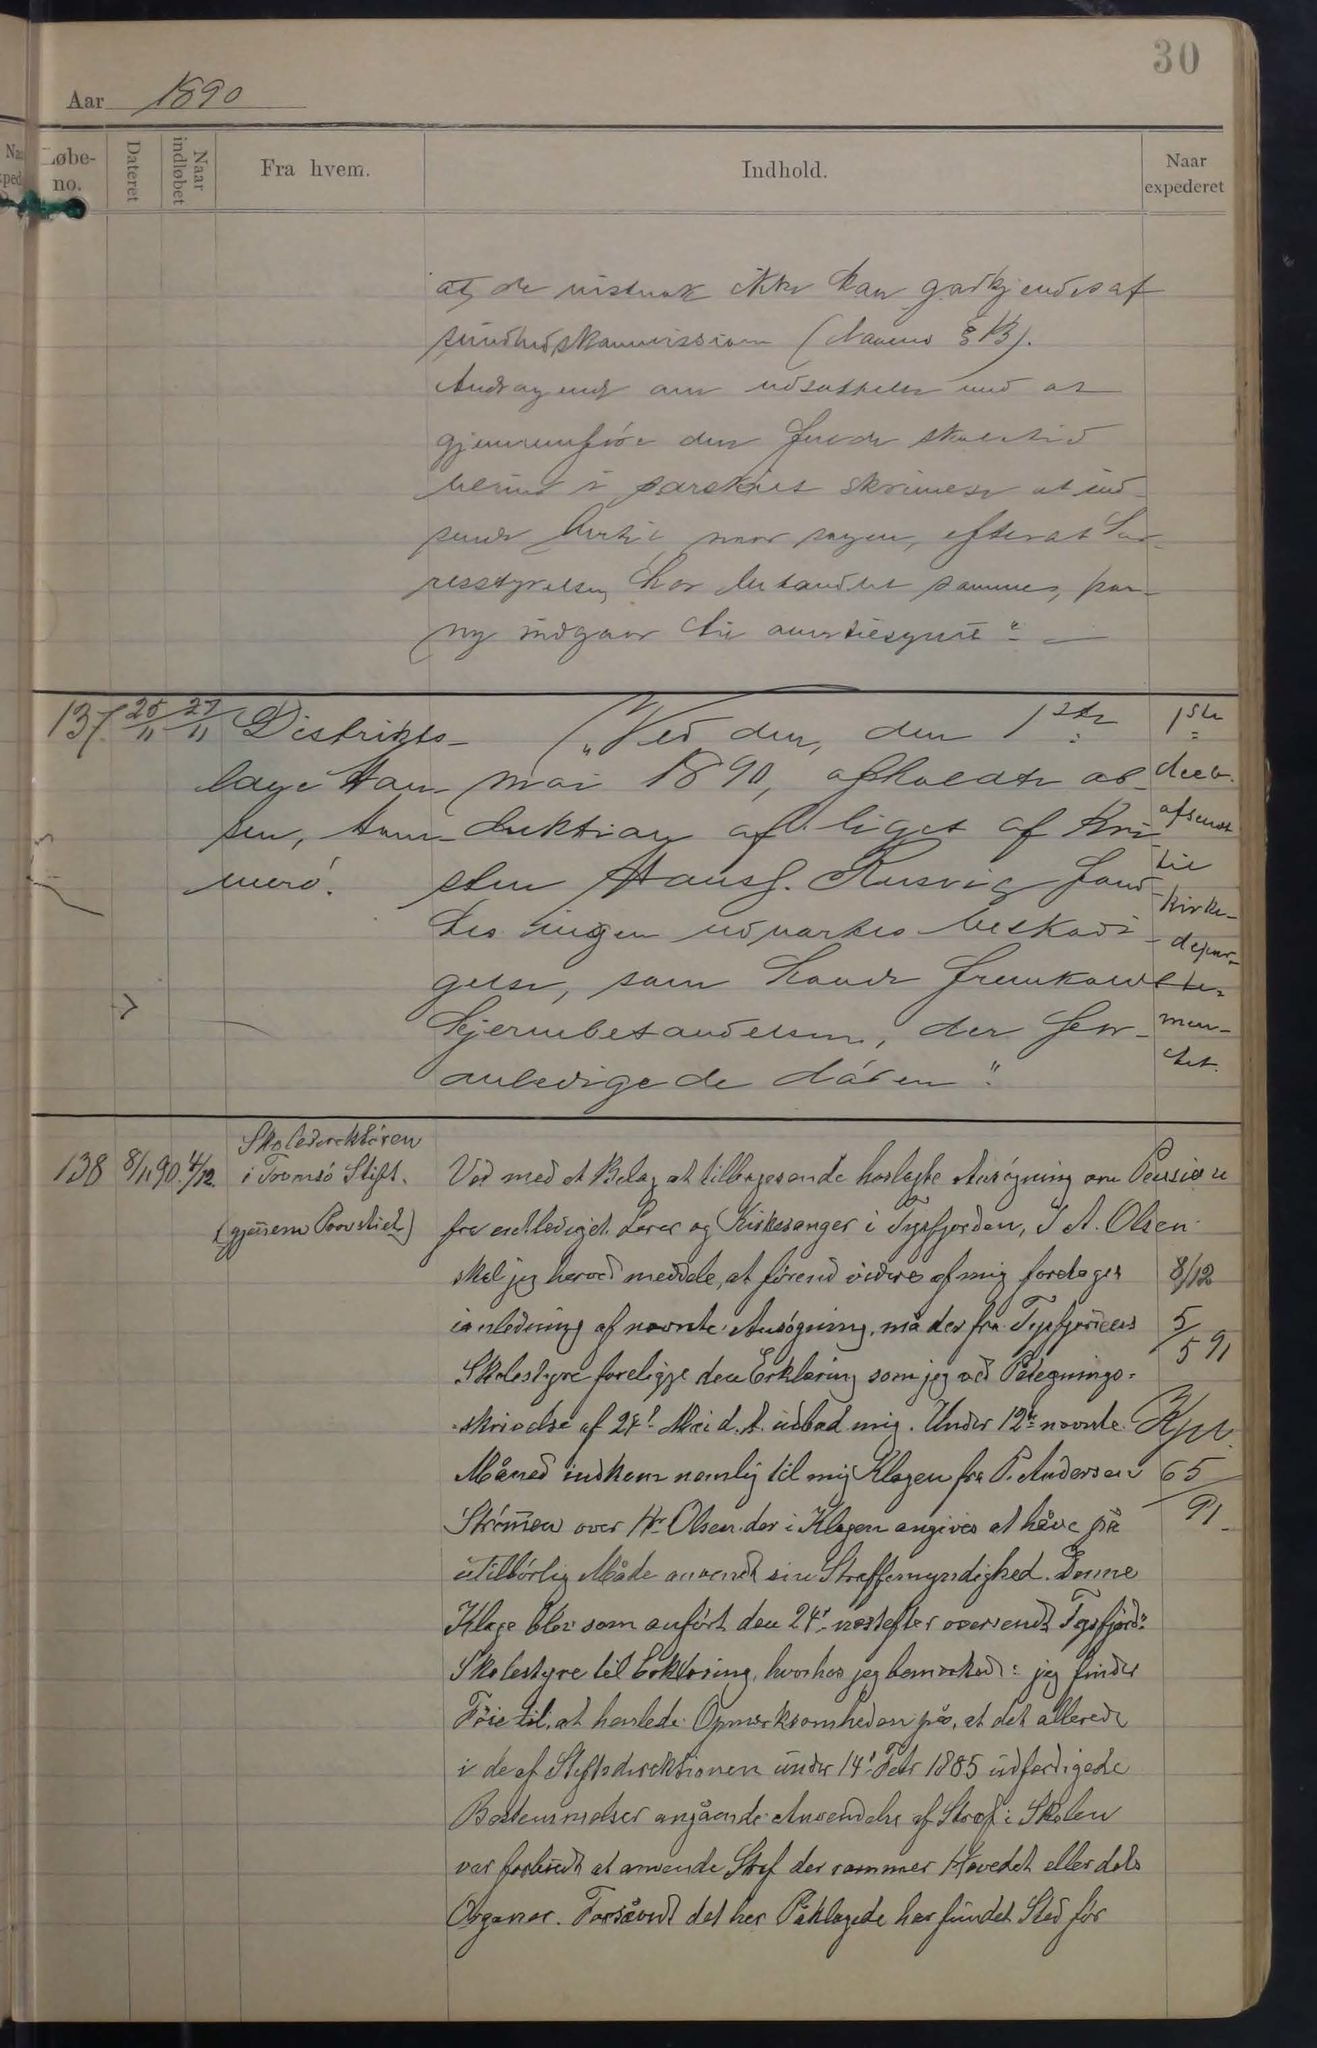 30
Aar 1890
Løbe-
no.
Dateret
Naar
indløbet
Fra hvem.
Indhold.
Naar
expederet
at de ikke kan godkjendes af
sundhedskommission
Andragende om udsættelse med at
gjennemføre den skoletid
i særskilt skrivelse at ind-
sende hertil naar sagen, efterat
resstyrelsen har behandlet samme, paa-
ny indgaar til
137. 25/11 27/11 Distrikts-
læge Han-
sen, Ham-
merø.
"Ved den, den 1ste
mai 1890, afholdte ob-
duktion af liget af Kri
sten Hans S. Rusvig fand
tes ingen udvortes beskadi-
gelse, som havde fremkaldt
hjernebetændelsen, der for-
anledigede døden".
1ste
decb.
afsendt
til
Kirke-
depar-
te-
men-
tet.
138 8/11 90. 4/12. Skoledirektøren
i Tromsø Stift.
(gjennem Provstiet)
Ved med et Bilag at tilbagesende hoslagte Ansøgning om Pension
fra entlediget Lærer og Kirkesanger i Tysfjorden, J A. Olsen
skal jeg herved meddele, at førend videre af mig foretages
i anledning af nævnte Ansøgning, må der fra Tysfjordens
Skolestyre foreligge den Erklæring som jeg ved Påtegnings-
skrivelse af 24de Mai d. A. udbad mig. Under 12te nævnte
Måned indkom nemlig til mig Klagen fra P. Andersen
Strømen over Hr Olsen der i Klagen angives at have på
utilbørlig Måde anvendt sin Straffemyndighed. Denne
Klage blev som anført den 24de næstefter oversendt Tysfjord
Skolestyre til Erklæring, hvorhos jeg bemærkede: jeg finder
Føie til, at henlede Opmærksomheden på, at det allerede
i de af Stiftsdirektionen under 14de Febr 1885 udfærdigede
Bestemmelser angående Anvendelse af Straf i Skolen
var forbudt at anvende Straf der rammer Hovedet eller dets
Organer. Forsåvidt det her Påklagede har fundet Sted før
8/12
5/5 91
65/91